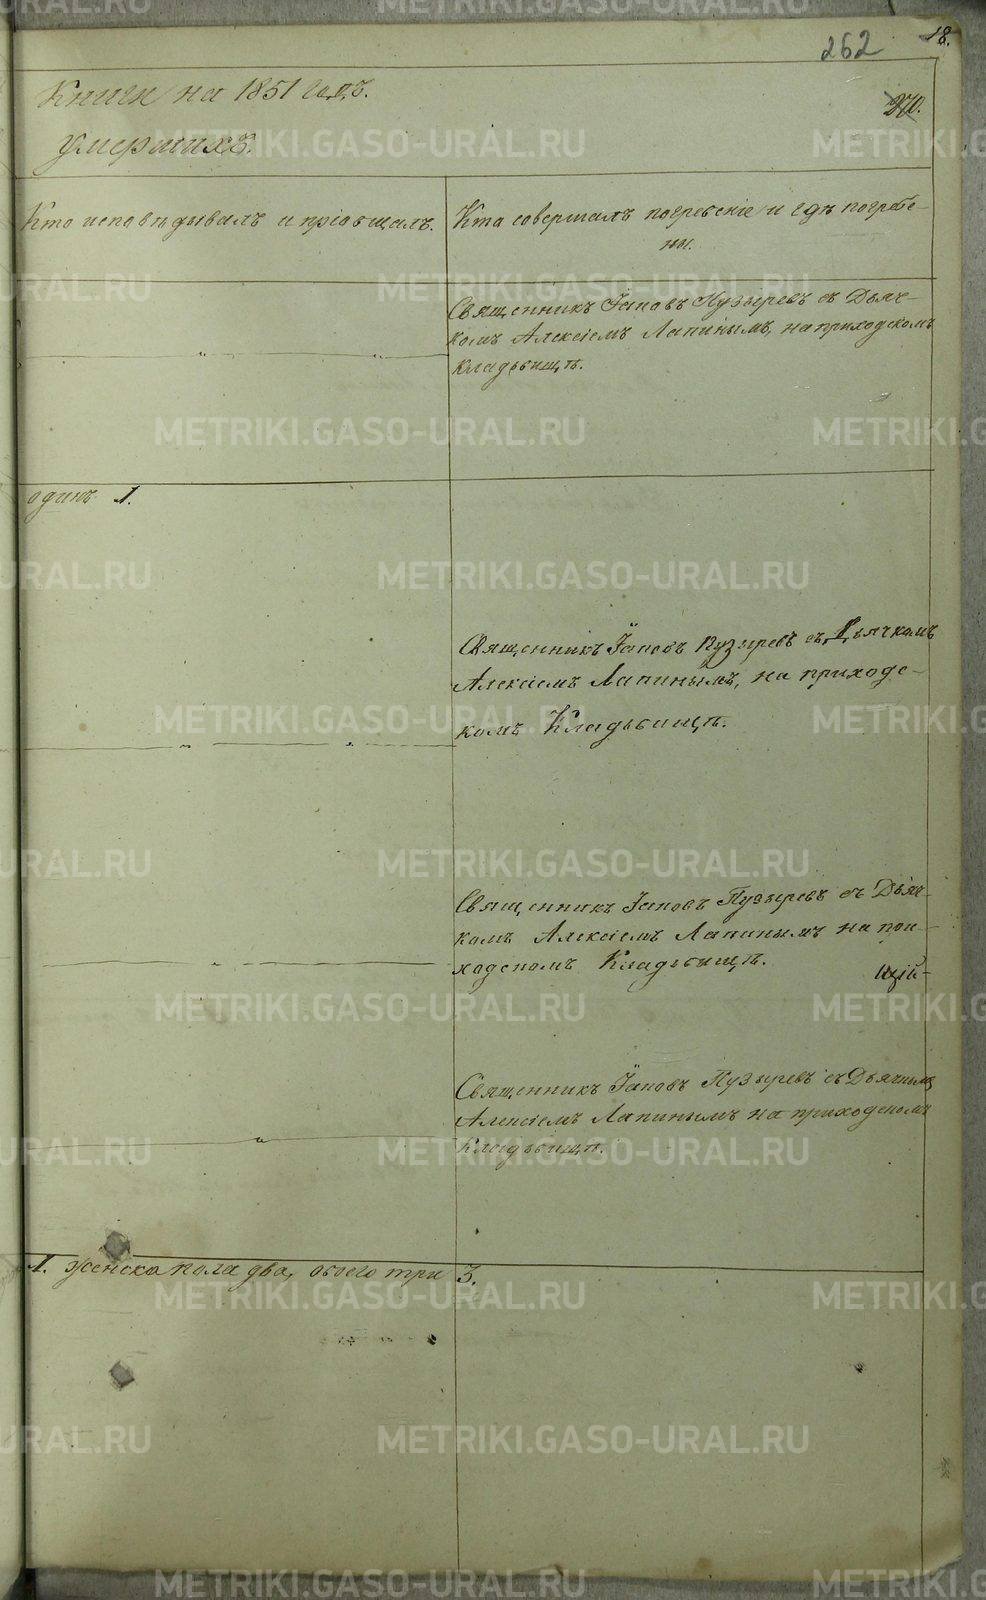 262
18.
270.
Книги на 1851 годъ.
умершихъ.
Кто исповѣдывалъ и пріобщалъ.
Кто совершалъ погребеніе и гдѣ погребе-
ны.
Священникъ Іаковъ Пузыревъ съ Дьяч-
комъ Алексіемъ Лапинымъ, на приходскомъ
кладьбищѣ.
одинъ 1.
Священникъ Іаковъ Пузыревъ съ Дьячкомъ
Алексіемъ Лапинымъ, на приходс-
комъ Кладьбищѣ.
Священникъ Іаковъ Пузыревъ съ Дьяч-
комъ Алексіемъ Лапинымъ на при-
ходскомъ Кладьбищѣ.
щій-
Священникъ Іаковъ Пузыревъ съ Дьячкомъ
Алексіемъ Лапинымъ на приходскомъ
Кладьбищѣ.
1. женска пола два, обоего три 3.
METRIKI.GASO-URAL.RU